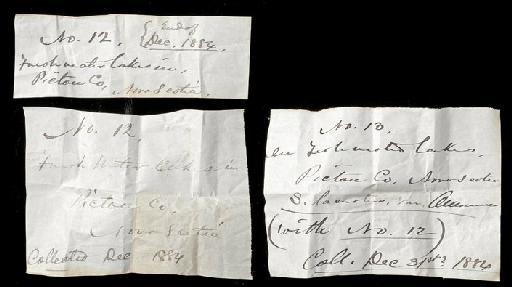 No. 12. { End of
Dec. 1884.
Freshwater lakes in
Pictou Co., Nova Scotia.
No. 12.
Fresh Water Lakes in
Pictou Co,
Nova Scotia
Collected Dec 1884
No. 13.
in freshwater lakes,
Pictou Co. Nova Scotia
S. lacustris, var.
(with No. 12)
Coll. Dec 31st 1884